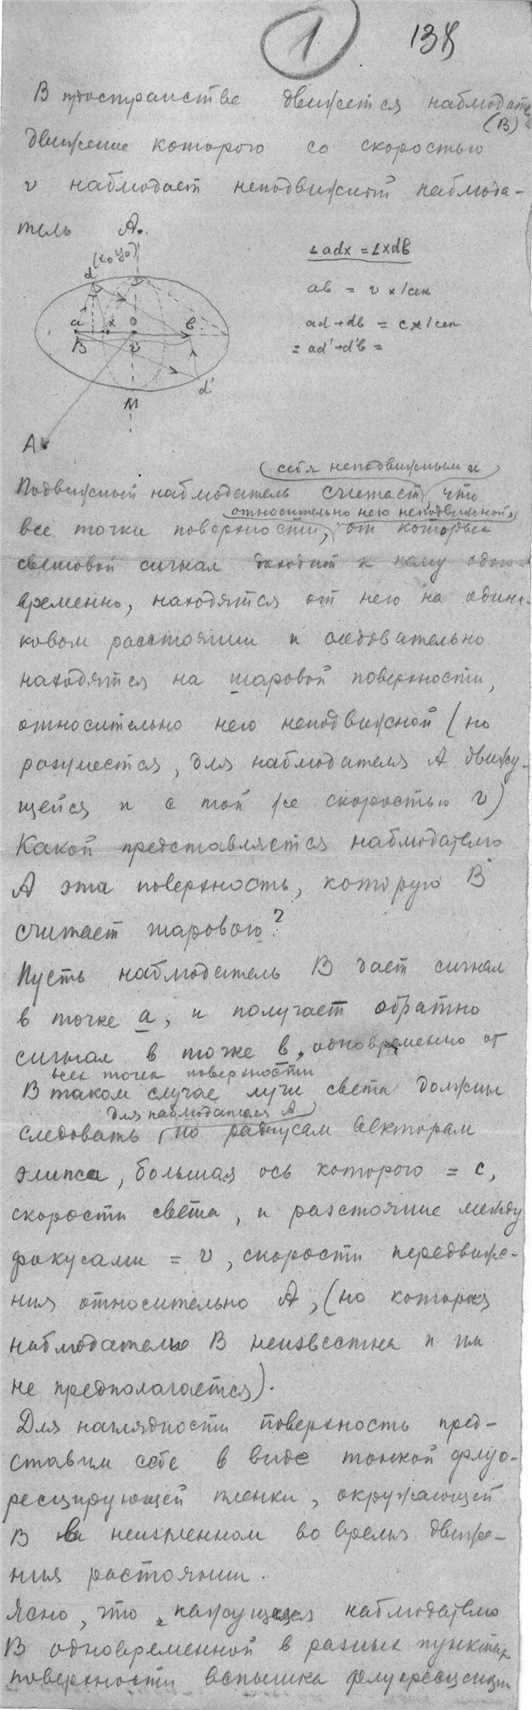 1 138
В пространстве движется наблюдатель
(B)
движение которого со скоростью
v наблюдает неподвижный наблюда-
тель A.
d (x₀y₀)
∠adx = ∠xdb
ab = v x 1 сек
ad + db = c x 1 сек
= ad' + d'b =
a x o b
B v
M d'
A
(себя неподвижным и
Подвижный наблюдатель считает, что
относительно него неподвижной,
все точки поверхности, от которых
световой сигнал доходит к нему одно-
временно, находятся от него на одина-
ковом расстоянии и следовательно
находятся на шаровой поверхности,
относительно него неподвижной (но
разумеется, для наблюдателя A движу-
щейся и с той же скоростью v)
Какой представляется наблюдателю
A эта поверхность, которую B
считает шаровою?
Пусть наблюдатель B дает сигнал
в точке a, и получает обратно
сигнал в точке b, одновременно от
всех точек поверхности
В таком случае лучи света должны
для наблюдателя A
следовать по радиусам векторам
элипса, большая ось которого = c,
скорости света, и расстояние между
фокусами = v, скорости передвиже-
ния относительно A, (но которая
наблюдателю B неизвестна и им
не предполагается).
Для наглядности поверхность пред-
ставим себе в виде тонкой флуо-
ресцирующей пленки, окружающей
B в неизменном во время движе-
ния растоянии.
Ясно, что кажущаяся наблюдателю
B одновременной в разных пунктах
поверхности вспышка флуоресценции